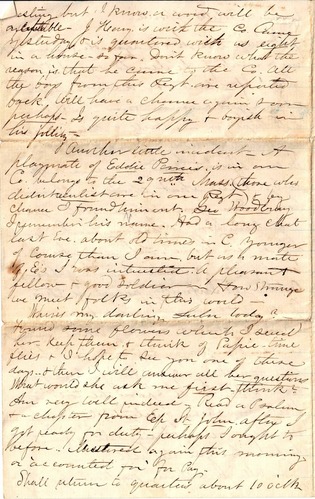 but I know a word will be
acceptable - J Henry is with the Co. Came
yesterday & is quartered with us eight
in a house - so far. Don't know what the
reason is that he came of the Co. All
the boys from this Regt. are reported
back. Will have a chance again soon
perhaps. Is quite happy &
in his
Another little incident - A
playmate of Eddie is in our
Co. belongs to the 29th Mass. those who
didn't reenlist are in our Regt. By
chance I found him out. Geo
I remember his name. Had a long chat
last eve. about old times in C. Younger
of course than I am, but as a mate
of E's I was interested. A pleasant
fellow & good soldier - How strange
we meet folks in this world -
Hows my darling today?
Found some flowers which I send
her. Keep them, & think of Papa. Time
flies & I hope to see you one of these
days. & then I will answer all her questions
What would she ask me first - think?
Am very well indeed. Read a Psalm
& chapter from Ep. St. John, after I
got ready for duty - perhaps I ought to
before. Mustered again this morning
or "accounted for" for Pay.
Shall return to quarters about 10 oclk